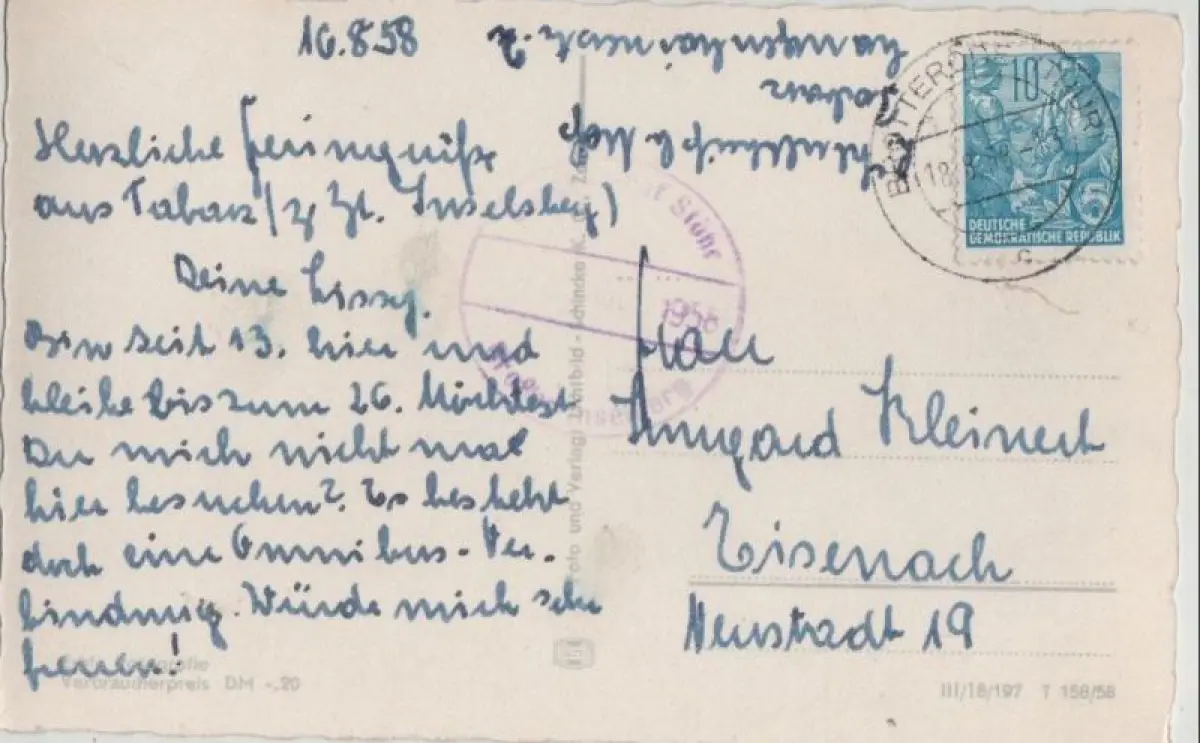 16.8.58
Herzliche Feriengrüße
aus Tabarz (z. Zt. Inselsberg)
Deine Lissy.
Bin seit 13. hier und
bleibe bis zum 26. Möchtest
Du mich nicht mal
hier besuchen? Es besteht
doch eine Omnibus-Ver-
bindung. Würde mich sehr
freuen!
Tabarz
Frau
Irmgard Kleinert
Eisenach
Neustadt 19
10
5
DEUTSCHE
DEMOKRATISCHE REPUBLIK
18.8.58
1958
Stöhr
Inselsberg
Foto und Verlag: Lichtbild-Schincke K.G.
Verbraucherpreis DM -.20
III/18/197 T 158/58